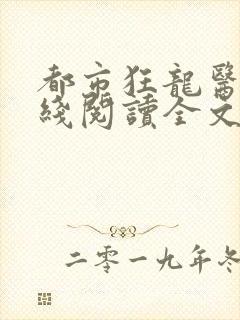 都市狂龍醫
綫閱讀全文
二零一九年冬